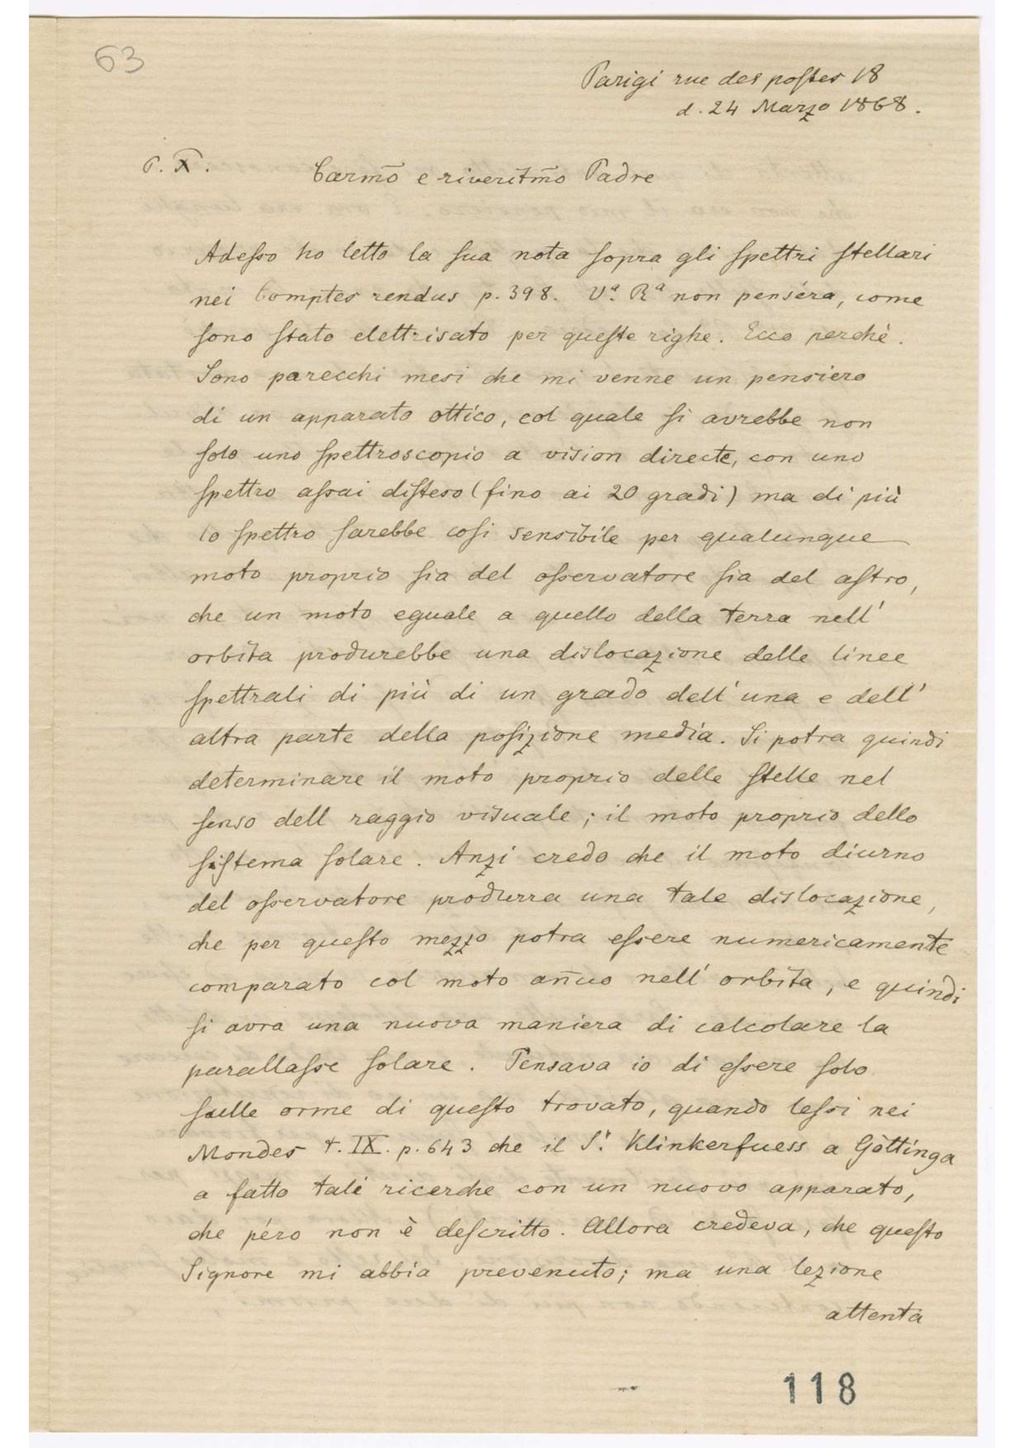 63
Parigi rue des postes 18
d. 24 Marzo 1868.
P. X.
Carmo e riveritmo Padre
Adesso ho letto la sua nota sopra gli spettri stellari
nei Comptes rendus p. 398. Va. Ra non pensera, come
sono stato elettrisato per queste righe. Ecco perchè.
Sono parecchi mesi che mi venne un pensiero
di un apparato ottico, col quale si avrebbe non
solo uno spettroscopio a vision directe, con uno
spettro assai disteso (fino ai 20 gradi) ma di più
lo spettro sarebbe cosi sensibile per qualunque
moto proprio sia del osservatore sia del astro,
che un moto eguale a quello della terra nell'
orbita produrebbe una dislocazione delle linee
spettrali di più di un grado dell' una e dell'
altra parte della posizione media. Si potra quindi
determinare il moto proprio delle stelle nel
senso dell raggio visuale; il moto proprio dello
sistema solare. Anzi credo che il moto diurno
del osservatore produrra una tale dislocazione,
che per questo mezzo potra essere numericamente
comparato col moto añuo nell' orbita, e quindi
si avra una nuova maniera di calcolare la
parallasse solare. Pensava io di essere solo
sulle orme di questo trovato, quando lessi nei
Mondes t. IX. p. 643 che il Sr. Klinkerfuess a Göttinga
a fatto tali ricerche con un nuovo apparato,
che péro non è descritto. Allora credeva, che questo
Signore mi abbia prevenuto; ma una lezione
attenta
118